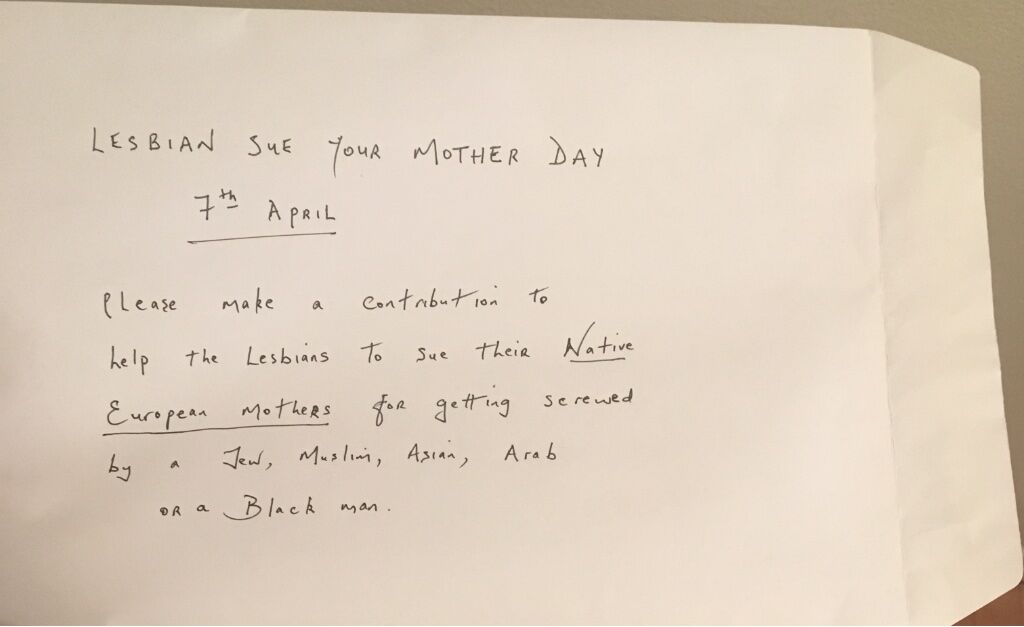 LESBIAN SUE YOUR MOTHER DAY
7th APRIL
Please make a contribution to
help the Lesbians to sue their Native
European mothers for getting screwed
by a Jew, Muslim, Asian, Arab
OR a Black man.